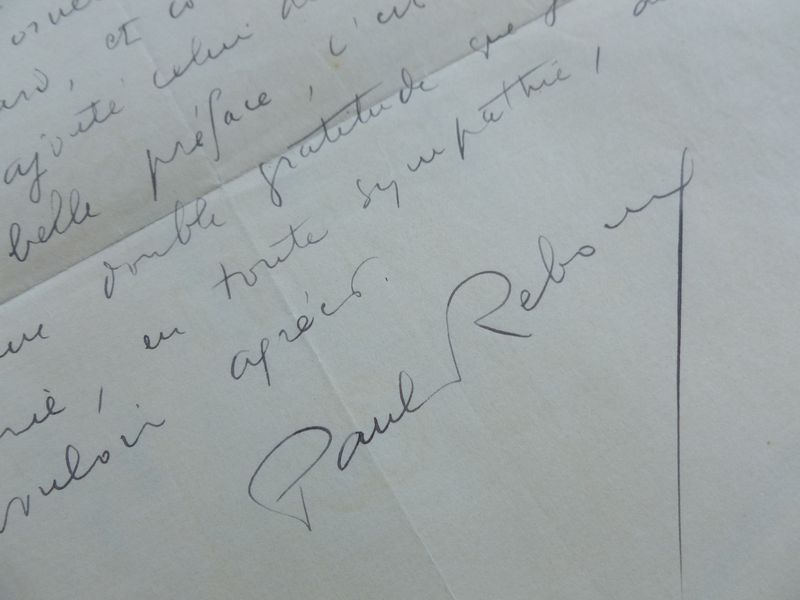 et
ajouté celui
belle préface, c'est
double gratitude que
en toute sympathie,
vouloir agréer.
Paul Reboux